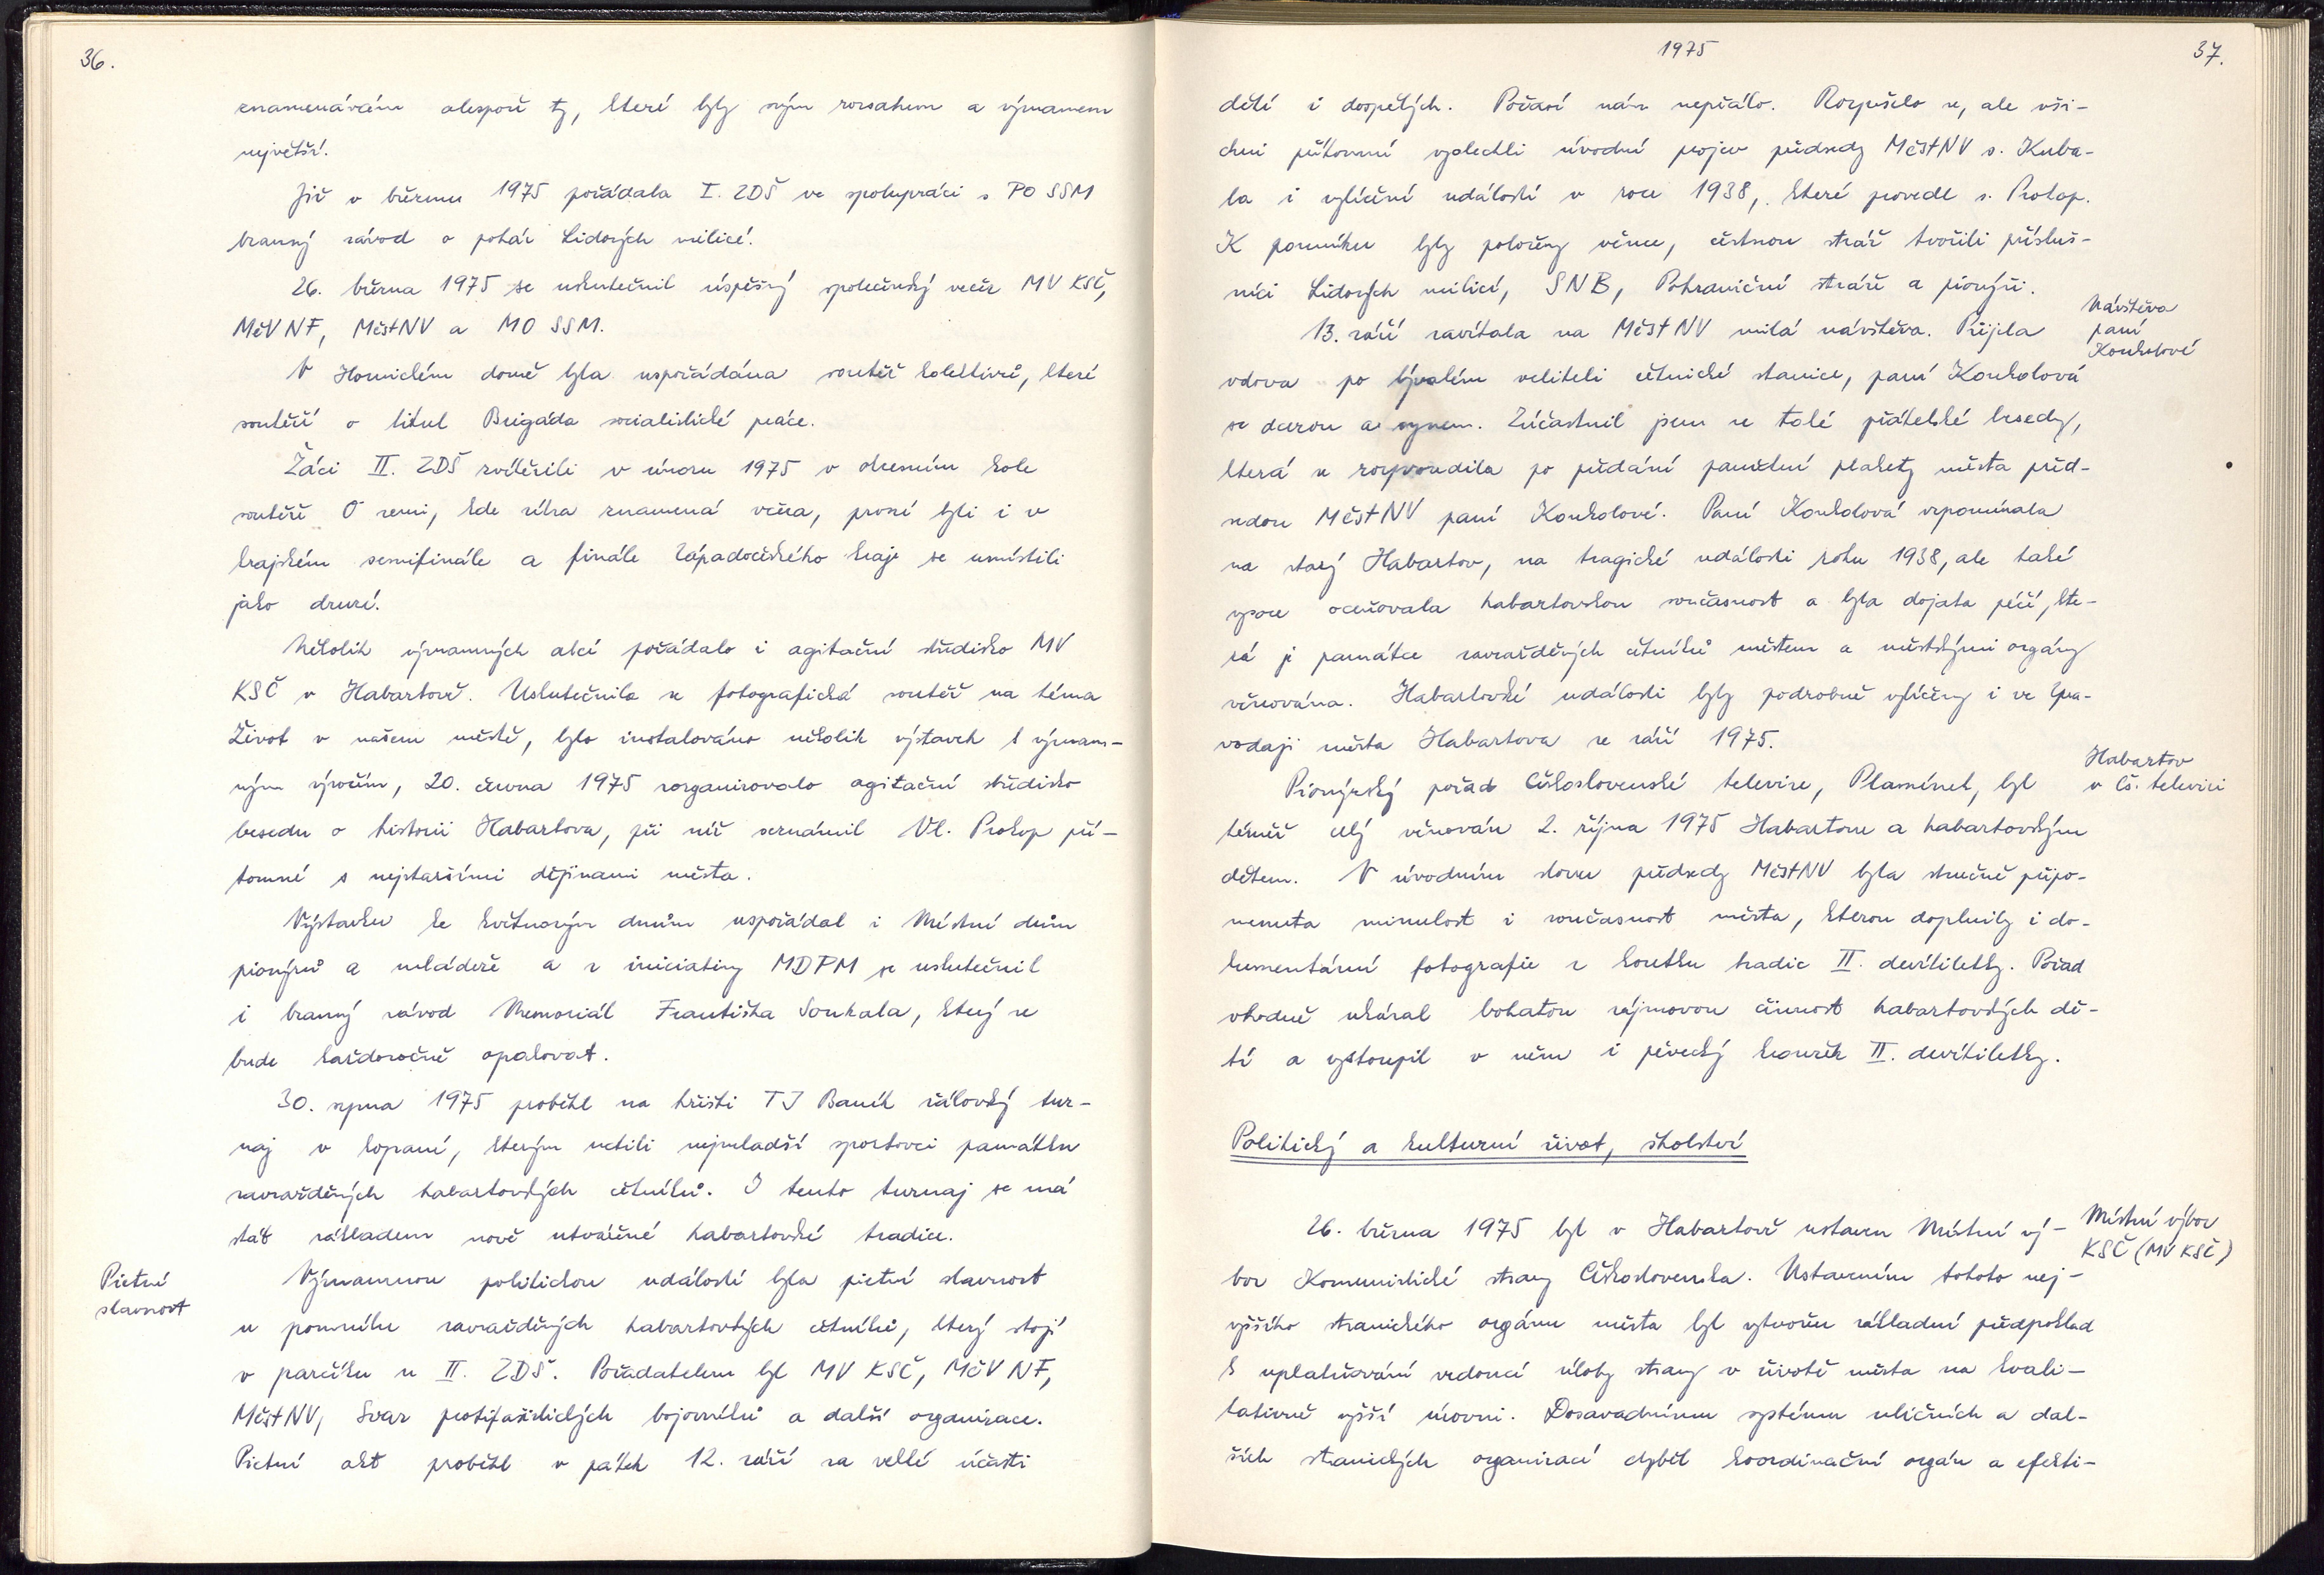 36.
znamenávám alespoň ty, které byly svým rozsahem a významem
největší.
Již v březnu 1975 pořádala I. ZDŠ ve spolupráci s PO SSM
branný závod o pohár Lidových milicí.
26. března 1975 se uskutečnil úspěšný společenský večer MV KSČ,
MěV NF, MěstNV a MO SSM.
V Hornickém domě byla uspořádána soutěž kolektivů, které
soutěží o titul Brigáda socialistické práce.
Žáci II. ZDŠ zvítězili v únoru 1975 v okresním kole
soutěže O zemi, kde zítra znamená včera, první byli i v
krajském semifinále a finále Západočeského kraje se umístili
jako druzí.
Několik významných akcí pořádalo i agitační středisko MV
KSČ v Habartově. Uskutečnila se fotografická soutěž na téma
Život v našem městě, bylo instalováno několik výstavek k význam-
ným výročím, 20. června 1975 zorganizovalo agitační středisko
besedu o historii Habartova, při níž seznámil Vl. Prokop pří-
tomné s nejstaršími dějinami města.
Výstavku ke květnovým dnům uspořádal i Místní dům
pionýrů a mládeže a z iniciativy MDPM se uskutečnil
i branný závod Memoriál Františka Soukala, který se
bude každoročně opakovat.
30. srpna 1975 proběhl na hřišti TJ Baník žákovský tur-
naj v kopané, kterým uctili nejmladší sportovci památku
zavražděných habartovských četníků. I tento turnaj se má
stát základem nově utvářené habartovské tradice.
Pietní
slavnost
Významnou politickou událostí byla pietní slavnost
u pomníku zavražděných habartovských četníků, který stojí
v parčíku u II. ZDŠ. Pořadatelem byl MV KSČ, MěV NF,
MěstNV, Svaz protifašistických bojovníků a další organizace.
Pietní akt proběhl v pátek 12. září za velké účasti
1975
37.
dětí i dospělých. Počasí nám nepřálo. Rozpršelo se, ale vši-
chni přítomní vyslechli úvodní projev předsedy MěstNV s. Kuba-
la i vylíčení událostí v roce 1938, které provedl s. Prokop.
K pomníku byly položeny věnce, čestnou stráž tvořili přísluš-
níci Lidových milicí, SNB, Pohraniční stráže a pionýři.
Návštěva
paní
Koukolové
13. září zavítala na MěstNV milá návštěva. Přijela
vdova po bývalém veliteli četnické stanice, paní Koukolová
se dcerou a synem. Zúčastnil jsem se také přátelské besedy,
která se rozproudila po předání pamětní plakety města před-
sedou MěstNV paní Koukolové. Paní Koukolová vzpomínala
na starý Habartov, na tragické události roku 1938, ale také
vysoce oceňovala habartovskou současnost a byla dojata péčí, kte-
rá je památce zavražděných četníků městem a městskými orgány
věnována. Habartovské události byly podrobně vylíčeny i ve Zpra-
vodaji města Habartova ze září 1975.
Habartov
v čs. televizi
Pionýrský pořad Československé televize, Plamínek, byl
téměř celý věnován 2. října 1975 Habartovu a habartovským
dětem. V úvodním slovu předsedy MěstNV byla stručně připo-
menuta minulost i současnost města, kterou doplnily i do-
kumentární fotografie z koutku tradic II. devítiletky. Pořad
vhodně ukázal bohatou zájmovou činnost habartovských dě-
tí a vystoupil v něm i pěvecký kroužek II. devítiletky.
Politický a kulturní život, školství
Místní výbor
KSČ (MV KSČ)
26. března 1975 byl v Habartově ustaven Místní vý-
bor Komunistické strany Československa. Ustavením tohoto nej-
vyššího stranického orgánu města byl vytvořen základní předpoklad
k uplatňování vedoucí úlohy strany v životě města na kvali-
tativně vyšší úrovni. Dosavadnímu systému uličních a dal-
ších stranických organizací chyběl koordinační orgán a efekti-